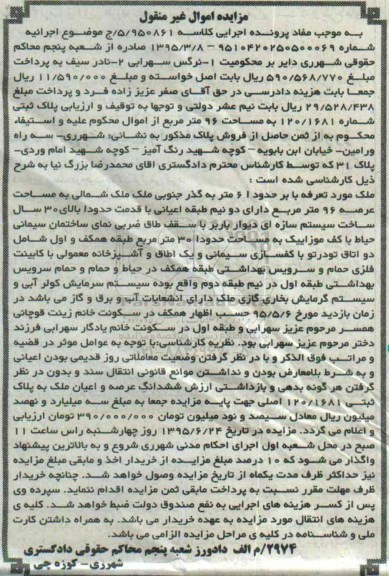 مزایده اموال غیر منقول
به موجب مفاد پرونده اجرایی کلاسه ۵/۹۵۰۸۶۱/ج موضوع اجرائیه
شماره ۹۵۱۰۴۲۰۲۵۰۵۰۰۰۶۹ – ۱۳۹۵/۳/۸ صادره از شعبه پنجم محاکم
حقوقی شهرری دایر بر محکومیت ۱-نرگس سهرابی ۲-نادر سیف به پرداخت
مبلغ ۵۹۰/۵۶۸/۷۷۰ ریال بابت اصل خواسته و مبلغ ۱۱/۵۹۰/۰۰۰ ریال
جمعا بابت هزینه دادرسی در حق آقای صفر عزیز زاده فرد و پرداخت مبلغ
۲۹/۵۲۸/۴۳۸ ریال بابت نیم عشر دولتی و توجها به توقیف و ارزیابی پلاک ثبتی
شماره ۱۲۰/۱۶۸۱ به مساحت ۹۶ متر مربع از اموال محکوم علیه و استیفاء
محکوم به از ثمن حاصل از فروش پلاک مذکور به نشانی: شهرری- سه راه
ورامین- خیابان ابن بابویه – کوچه شهید رنگ آمیز – کوچه شهید امام وردی-
پلاک ۳۱ که توسط کارشناس محترم دادگستری اقای محمدرضا بزرگ نیا به شرح
ذیل کارشناسی شده است :
ملک مورد تعرفه با بر حدودا ۶ متر به گذر جنوبی ملک ملک شمالی به مساحت
عرصه ۹۶ متر مربع دارای دو نیم طبقه اعیانی با قدمت حدودا بالای ۳۰ سال
ساخت سیستم سازه ای دیوار باربر با سقف طاق ضربی نمای ساختمان سیمانی
حیاط با کف موزاییک به مساحت حدودا ۳۰ متر مربع طبقه همکف و اول شامل
دو اتاق تودرتو با کفسازی سیمانی و یک اطاق و آشپزخانه معمولی با کابینت
فلزی حمام و سرویس بهداشتی طبقه همکف در حیاط و حمام و حمام سرویس
بهداشتی طبقه اول در نیم طبقه دوم واقع بوده سیستم سرمایش کولر آبی و
سیستم گرمایش بخاری گازی ملک دارای انشعابات آب و برق و گاز می باشد در
زمان بازدید مورخ ۹۵/۵/۶ حسب اظهار همکف در سکونت خانم زینت قوچانی
همسر مرحوم عزیز سهرابی و طبقه اول در سکونت خانم یادگار سهرابی فرزند
دختر مرحوم عزیز سهرابی بود. نظریه کارشناسی:با توجه به عوامل موثر در قضیه
و مراتب فوق الذکر و با در نظر گرفتن وضعیت معاملاتی روز قدیمی بودن اعیانی
و به شرط بلامعارض بودن و نداشتن موانع قانونی انتقال سند و بدون در نظر
گرفتن هر گونه بدهی و بازداشتی ارزش ششدانگ عرصه و اعیان ملک به پلاک
ثبتی ۱۲۰/۱۶۸۱ اصلی جهت پایه مزایده جمعا به مبلغ سه میلیارد و نهصد
میلیون ریال معادل سیصد و نود میلیون تومان ۳۹۰/۰۰۰/۰۰۰ تومان ارزیابی
و اعلام می گردد. مزایده در تاریخ ۱۳۹۵/۶/۲۴ روز چهارشنبه راس ساعت ۱۱
صبح در محل شعبه اول اجرای احکام مدنی شهرری شروع و به بالاترین پیشنهاد
واگذار می شود که ۱۰ درصد مبلغ مزایده از خریدار اخذ و مابقی مبلغ مزایده
نیز حداکثر ظرف مدت یکماه از تاریخ مزایده وصول خواهد شد. چنانچه خریدار
ظرف مهلت مقرر نسبت به پرداخت مابقی ثمن مزایده اقدام ننماید. سپرده وی
پس از کسر هزینه های اجرایی به نفع صندوق دولت ضبط خواهد شد. کلیه ی
هزینه های انتقال مورد مزایده به عهده خریدار می باشد. به همراه داشتن کارت
ملی و شناسنامه در کلیه ی مراحل مزایده الزامی می باشد.
۲۹۷۴/م الف دادورز شعبه پنجم محاکم حقوقی دادگستری
شهرری- کوزه چی